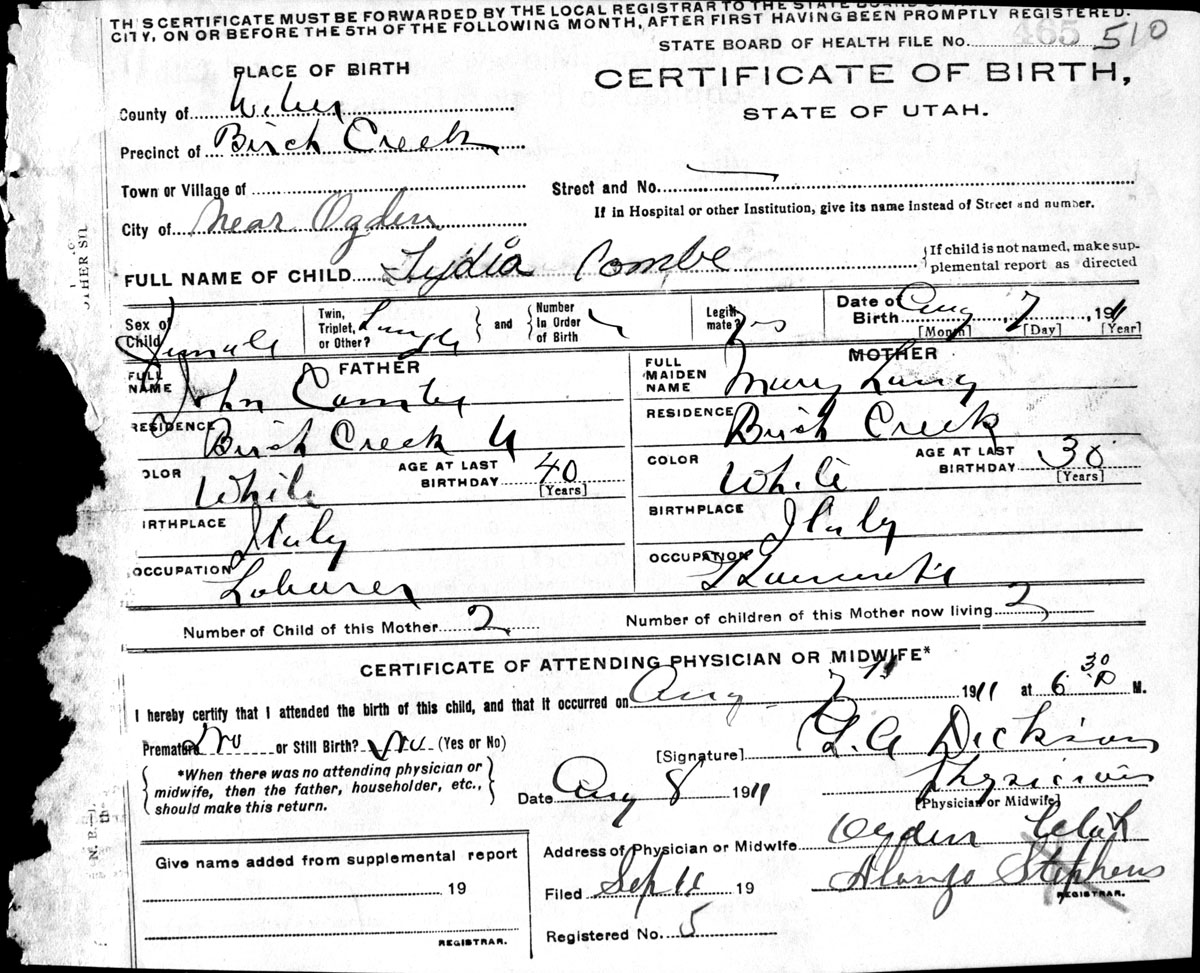 THIS CERTIFICATE MUST BE FORWARDED BY THE LOCAL REGISTRAR TO THE STATE BOARD OF
CITY, ON OR BEFORE THE 5TH OF THE FOLLOWING MONTH, AFTER FIRST HAVING BEEN PROMPTLY REGISTERED.
STATE BOARD OF HEALTH FILE No. 465 510
PLACE OF BIRTH
CERTIFICATE OF BIRTH,
STATE OF UTAH.
County of Weber
Precinct of Birch Creek
Town or Village of
Street and No.
If in Hospital or other Institution, give its name instead of Street and number.
City of Near Ogden
FULL NAME OF CHILD Lydia Combe
{If child is not named, make sup-
plemental report as directed
Sex of Child Female
Twin, Triplet, or Other? Single } and { Number In Order of Birth
Legiti-mate? Yes
Date of Birth Aug 7, 1911
[Month] [Day] [Year]
FATHER
MOTHER
FULL NAME John Combe
FULL MAIDEN NAME Mary Lang
RESIDENCE Birch Creek U
RESIDENCE Birch Creek
COLOR White AGE AT LAST BIRTHDAY 40 [Years]
COLOR White AGE AT LAST BIRTHDAY 30 [Years]
BIRTHPLACE Italy
BIRTHPLACE Italy
OCCUPATION Laborer
OCCUPATION
Number of Child of this Mother 2
Number of children of this Mother now living 2
CERTIFICATE OF ATTENDING PHYSICIAN OR MIDWIFE*
I hereby certify that I attended the birth of this child, and that it occurred on Aug 7th 1911 at 6 30 P M.
Premature No or Still Birth? No (Yes or No)
[Signature] Dickson
{ *When there was no attending physician or
midwife, then the father, householder, etc.,
should make this return. }
Physician
[Physician or Midwife]
Date Aug 8 1911
Address of Physician or Midwife Ogden Utah
Give name added from supplemental report
19
Filed Sep 11 19
Alonzo Stephens
REGISTRAR.
Registered No. 5
REGISTRAR.